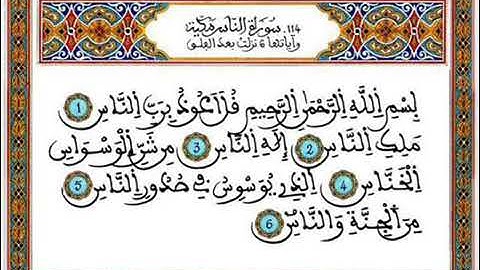 114. سورة الناس مكية
وآياتها 6 نزلت بعد الفلق
بِسْمِ اللَّهِ الرَّحْمَٰنِ الرَّحِيمِ قُلْ أَعُوذُ بِرَبِّ النَّاسِ 1
مَلِكِ النَّاسِ 2 إِلَٰهِ النَّاسِ 3 مِن شَرِّ الْوَسْوَاسِ
الْخَنَّاسِ 4 الَّذِي يُوَسْوِسُ فِي صُدُورِ النَّاسِ 5
مِنَ الْجِنَّةِ وَالنَّاسِ 6